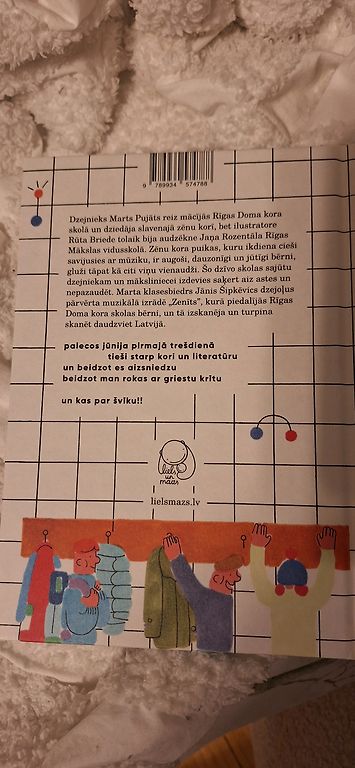 9 789934 574788
Dzejnieks Marts Pujāts reiz mācījās Rīgas Doma kora
skolā un dziedāja slavenajā zēnu korī, bet ilustratore
Rūta Briede tolaik bija audzēkne Jaņa Rozentāla Rīgas
Mākslas vidusskolā. Zēnu kora puikas, kuru ikdiena cieši
savijusies ar mūziku, ir augoši, dauzonīgi un jūtīgi bērni,
gluži tāpat kā citi viņu vienaudži. Šo dzīvo skolas sajūtu
dzejniekam un māksliniecei izdevies saķert aiz astes un
nepazaudēt. Marta klasesbiedrs Jānis Šipkēvics dzejoļus
pārvērta muzikālā izrādē „Zenīts”, kurā piedalījās Rīgas
Doma kora skolas bērni, un tā izskanēja un turpina
skanēt daudzviet Latvijā.
palecos jūnija pirmajā trešdienā
tieši starp kori un literatūru
un beidzot es aizsniedzu
beidzot man rokas ar griestu krītu
un kas par šviku!!
liels
un
mazs
lielsmazs.lv